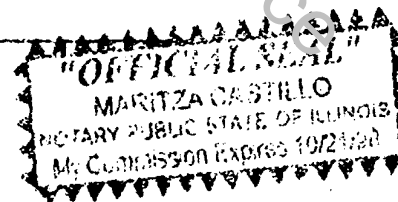 "OFFICIAL SEAL"
MARITZA CASTILLO
NOTARY PUBLIC STATE OF ILLINOIS
My Commission Expires 10/21/98